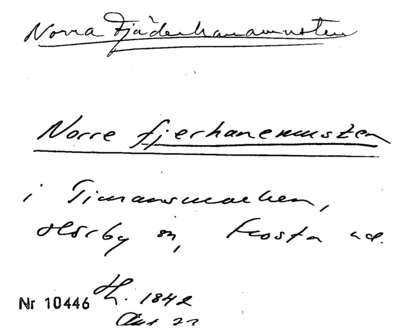 Norra Fjäderhanamusten
Norre fjerhanemusten
i Timansmarken,
Hörby sn, Frosta hd.
Nr 10446 H. 1842